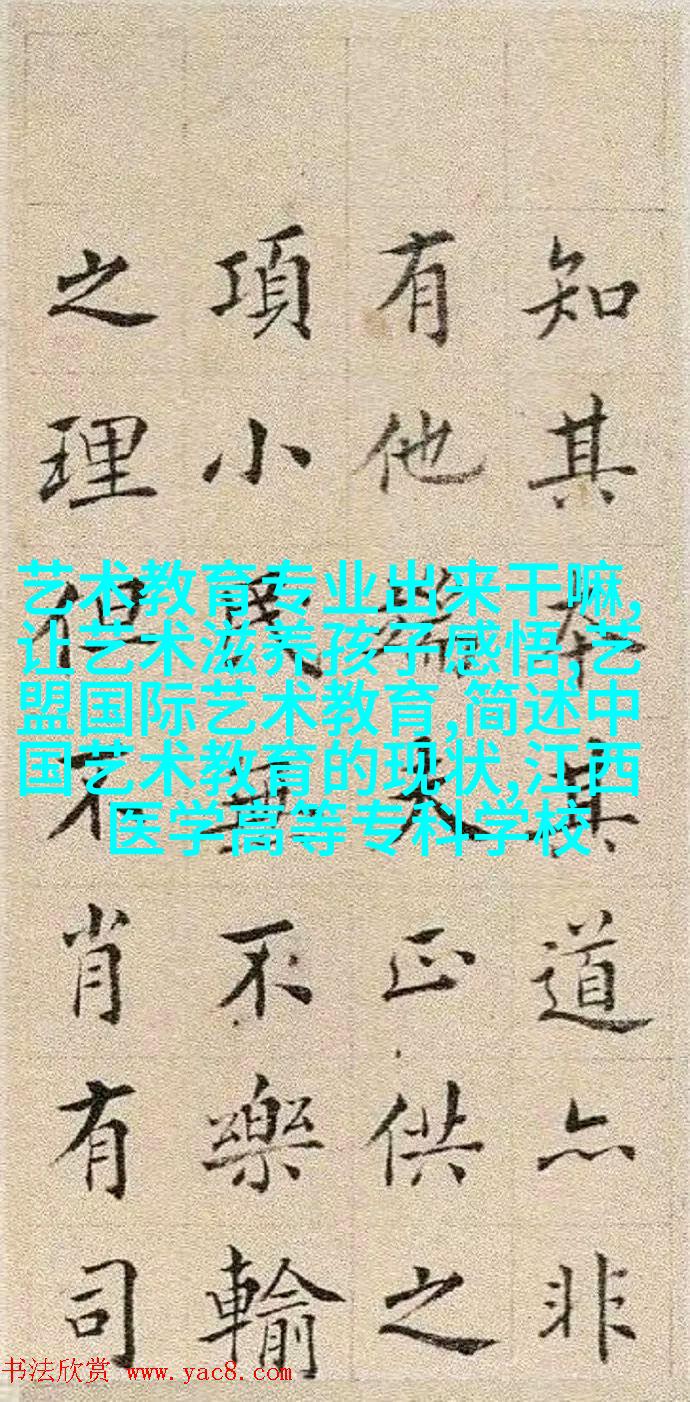 知其本其道亦非
有他端夫正供之
項小民無不樂輸
之理但不肖有司
艺术教育专业出来干嘛,
让艺术滋养孩子感悟,艺
盟国际艺术教育,简述中
国艺术教育的现状,江西
医学高等专科学校
书法欣赏 www.yac8.com